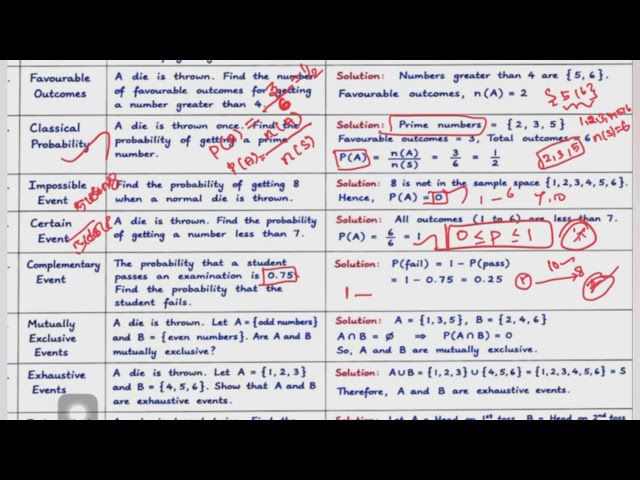 Favourable
Outcomes
A die is thrown. Find the number
of favourable outcomes for getting
a number greater than 4.
Solution: Numbers greater than 4 are {5, 6}.
Favourable outcomes, n(A) = 2
{5,6}
3/6 = 1/2
Classical
Probability
A die is thrown once. Find the
probability of getting a prime
number.
P(A) = n(A)/n(S)
Solution: Prime numbers = {2, 3, 5}
Favourable outcomes = 3, Total outcomes = 6
P(A) = n(A)/n(S) = 3/6 = 1/2
n(S)=6
2,3,5
Impossible
Event
Find the probability of getting 8
when a normal die is thrown.
Solution: 8 is not in the sample space {1, 2, 3, 4, 5, 6}.
Hence, P(A) = 0
1 – 6
Certain
Event
A die is thrown. Find the probability
of getting a number less than 7.
Solution: All outcomes (1 to 6) are less than 7.
P(A) = 6/6 = 1
0 ≤ P ≤ 1
Complementary
Event
The probability that a student
passes an examination is 0.75.
Find the probability that the
student fails.
Solution: P(fail) = 1 – P(pass)
= 1 – 0.75 = 0.25
1 –
10
8
Mutually
Exclusive
Events
A die is thrown. Let A = {odd numbers}
and B = {even numbers}. Are A and B
mutually exclusive?
Solution: A = {1, 3, 5}, B = {2, 4, 6}
A∩B = ∅ ⇒ P(A∩B) = 0
So, A and B are mutually exclusive.
Exhaustive
Events
A die is thrown. Let A = {1, 2, 3}
and B = {4, 5, 6}. Show that A and B
are exhaustive events.
Solution: A∪B = {1, 2, 3} ∪ {4, 5, 6} = {1, 2, 3, 4, 5, 6} = S
Therefore, A and B are exhaustive events.
Solution: Let A = Head on 1st toss, B = Head on 2nd toss